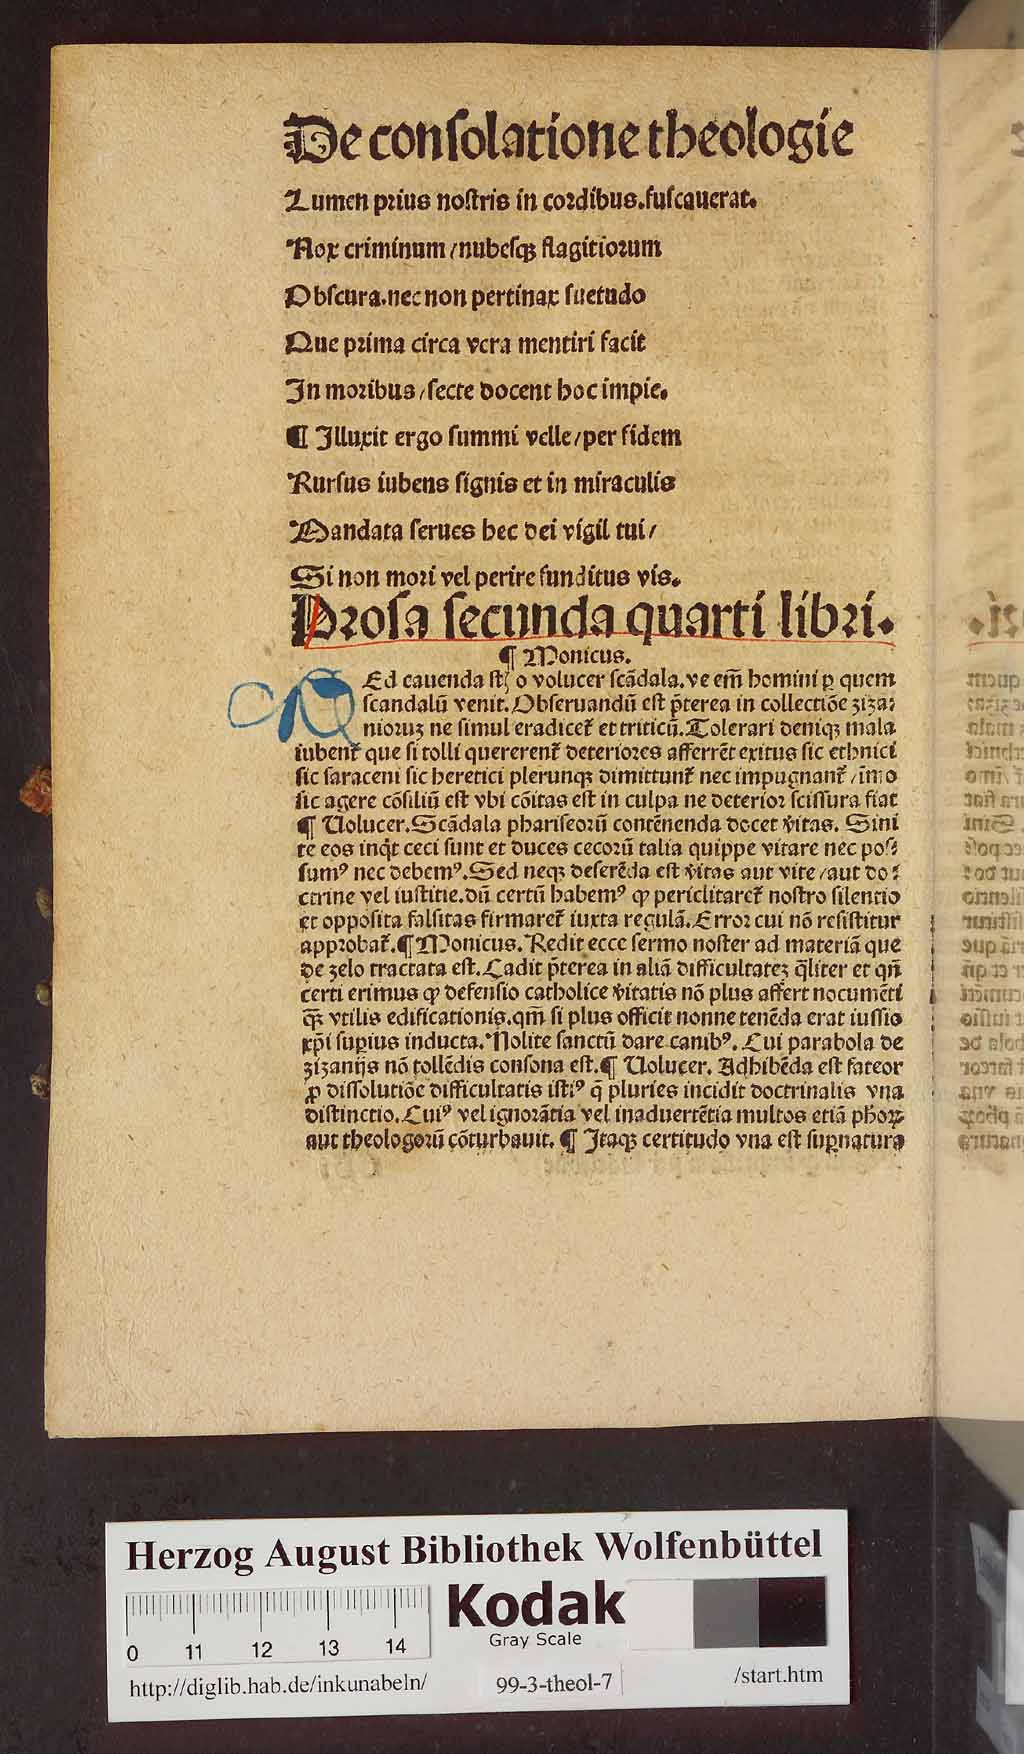 De consolatione theologie
Lumen prius nostris in cordibus.fuscauerat.
Nox criminum/nubesqꝫ flagitiorum
Obscura.nec non pertinax suetudo
Que prima circa vera mentiri facit
In moribus/secte docent hoc impie.
¶ Illuxit ergo summi velle/per fidem
Rursus iubens signis et in miraculis
Mandata serues hec dei vigil tui/
Si non mori vel perire funditus vis.
Prosa secunda quarti libri.
¶ Monicus.
Ed cauenda st̄ o volucer scādala.ve em̄ homini ꝑ quem
scandalū venit.Obseruandū est p̄terea in collectiōe ziza⸗
nioruꝫ ne simul eradicet᷑ et triticū.Tolerari deniqꝫ mala
iubent᷑ que si tolli quererent᷑ deteriores afferrēt exitus sic ethnici
sic saraceni sic heretici plerunqꝫ dimittunt᷑ nec impugnant᷑/īmo
sic agere cōsiliū est vbi cōitas est in culpa ne deterior scissura fiat
¶ Uolucer.Scādala phariseorū contēnenda docet v̄itas. Sini
te eos inq̇t ceci sunt et duces cecorū talia quippe vitare nec pos⸗
sumꝰ nec debemꝰ.Sed neqꝫ deserēda est v̄itas aut vite/aut do⸗
ctrine vel iustitie.dū certū habemꝰ ꝙ periclitaret᷑ nostro silentio
et opposita falsitas firmaret᷑ iuxta regulā.Error cui nō resistitur
approbat᷑.¶ Monicus.Redit ecce sermo noster ad materiā que
de zelo tractata est.Cadit p̄terea in aliā difficultateꝫ q̄liter et qn̄
certi erimus ꝙ defensio catholice v̄itatis nō plus affert nocumēti
q̄ꝫ vtilis edificationis.qm̄ si plus officit nonne tenēda erat iussio
xp̄i suꝑius inducta.Nolite sanctū dare canibꝰ. Cui parabola de
zizanijs nō tollēdis consona est.¶ Uolucer. Adhibēda est fateor
ꝓ dissolutiōe difficultatis istiꝰ q̄ pluries incidit doctrinalis vna
distinctio.Cuiꝰ vel ignorātia vel inaduertētia multos etiā phoꝝ
aut theologorū cōturbauit. ¶ Itaqꝫ certitudo vna est suꝑnatura
Herzog August Bibliothek Wolfenbüttel
Kodak
Gray Scale
0 11 12 13 14
http://diglib.hab.de/inkunabeln/ 99-3-theol-7 /start.htm